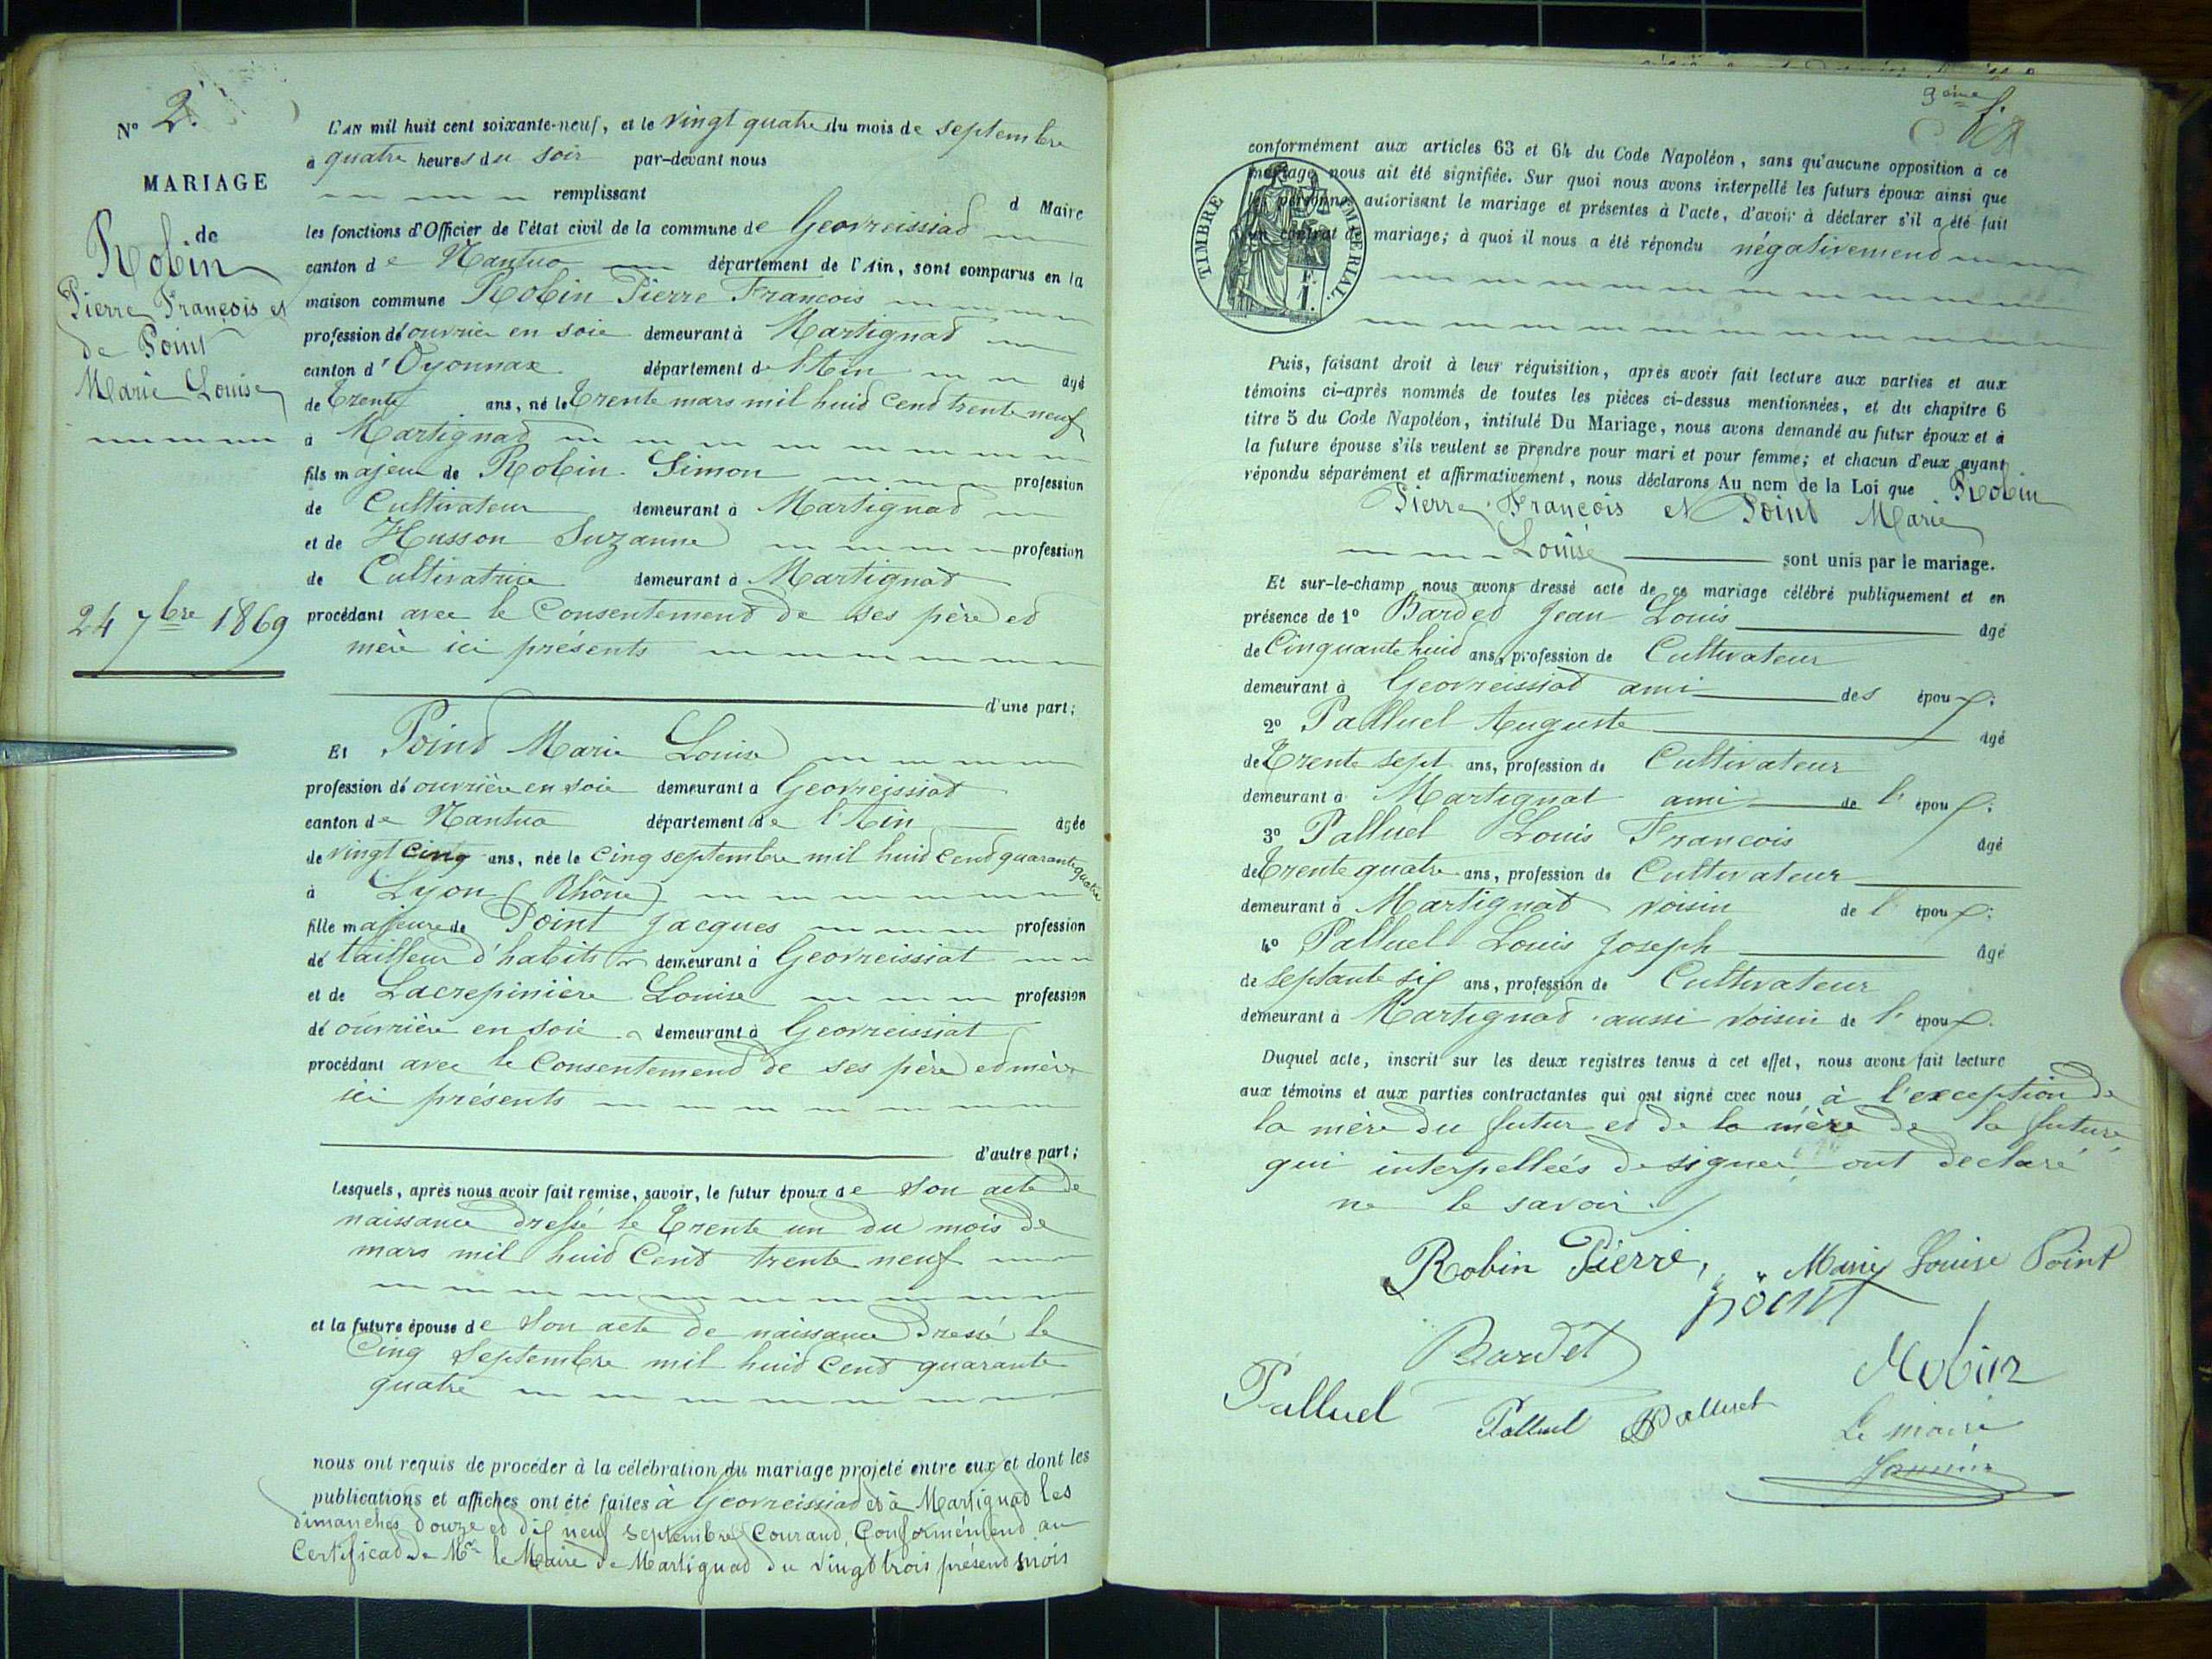 N° 2.
MARIAGE
de
Robin
Pierre François et
de Point
Marie Louise
24 7bre 1869
L'AN mil huit cent soixante-neuf, et le vingt quatre du mois de septembre
à quatre heures du soir par-devant nous
remplissant
d Maire
les fonctions d'Officier de l'état civil de la commune de Geovreissiad
canton de Nantua département de l'Ain, sont comparus en la
maison commune Robin Pierre François
profession d'ouvrier en soie demeurant à Martignad
canton d'Oyonnax département de l'Ain âgé
de Trente ans, né le Trente mars mil huid Cend trente neuf
à Martignad
fils majeur de Robin Simon profession
de Cultivateur demeurant à Martignad
et de Husson Suzanne profession
de Cultivatrice demeurant à Martignat
procédant avec le Consentemend de ses père ed
mère ici présents
d'une part;
Et Poind Marie Louise
profession d'ouvrière en soie demeurant à Geovreissiat
canton de Nantua département de l'Ain âgée
de vingt cinq ans, née le cinq septembre mil huid cend quarante quatre
à Lyon (Rhône)
fille majeure de Point Jacques profession
de tailleur d'habits demeurant à Geovreissiat
et de Lacrepinière Louise profession
d'ouvrière en soie demeurant à Geovreissiat
procédant avec le Consentemend de ses père ed mère
ici présents
d'autre part;
Lesquels, après nous avoir fait remise, savoir, le futur époux de son acte de
naissance dressé le Trente un du mois de
mars mil huid Cent trente neuf
et la future épouse de son acte de naissance dressé le
Cinq Septembre mil huid Cent quarante
quatre
nous ont requis de procéder à la célébration du mariage projeté entre eux et dont les
publications et affiches ont été faites à Geovreissiad et à Martignad les
dimanches douze ed dix neuf septembre Courand, Conformémend au
Certificad de Mr le Maire de Martignad du vingt trois présend mois
9ème f.
conformément aux articles 63 et 64 du Code Napoléon, sans qu'aucune opposition à ce
mariage nous ait été signifiée. Sur quoi nous avons interpellé les futurs époux ainsi que
les personnes autorisant le mariage et présentes à l'acte, d'avoir à déclarer s'il a été fait
un contrat de mariage; à quoi il nous a été répondu négativemend
TIMBRE IMPERIAL.
F.
1.
Puis, faisant droit à leur réquisition, après avoir fait lecture aux parties et aux
témoins ci-après nommés de toutes les pièces ci-dessus mentionnées, et du chapitre 6
titre 5 du Code Napoléon, intitulé Du Mariage, nous avons demandé au futur époux et à
la future épouse s'ils veulent se prendre pour mari et pour femme; et chacun d'eux ayant
répondu séparément et affirmativement, nous déclarons Au nom de la Loi que Robin
Pierre François et Point Marie
Louise sont unis par le mariage.
Et sur-le-champ nous avons dressé acte de ce mariage célébré publiquement et en
présence de 1° Bardet Jean Louis âgé
de Cinquante huid ans, profession de Cultivateur
demeurant à Geovreissiat ami des époux;
2° Palluel Auguste âgé
de Trente sept ans, profession de Cultivateur
demeurant à Martignat ami de l'époux;
3° Palluel Louis François âgé
de Trente quatre ans, profession de Cultivateur
demeurant à Martignat voisin de l'époux;
4° Palluel Louis Joseph âgé
de septante six ans, profession de Cultivateur
demeurant à Martignad aussi voisin de l'époux.
Duquel acte, inscrit sur les deux registres tenus à cet effet, nous avons fait lecture
aux témoins et aux parties contractantes qui ont signé avec nous à l'exception de
la mère du futur ed de la mère de la future
qui interpellées de signer ont déclaré
ne le savoir
Robin Pierre, Marie Louise Point
point
Bardet
Robin
Palluel
Palluel Palluel
Le maire